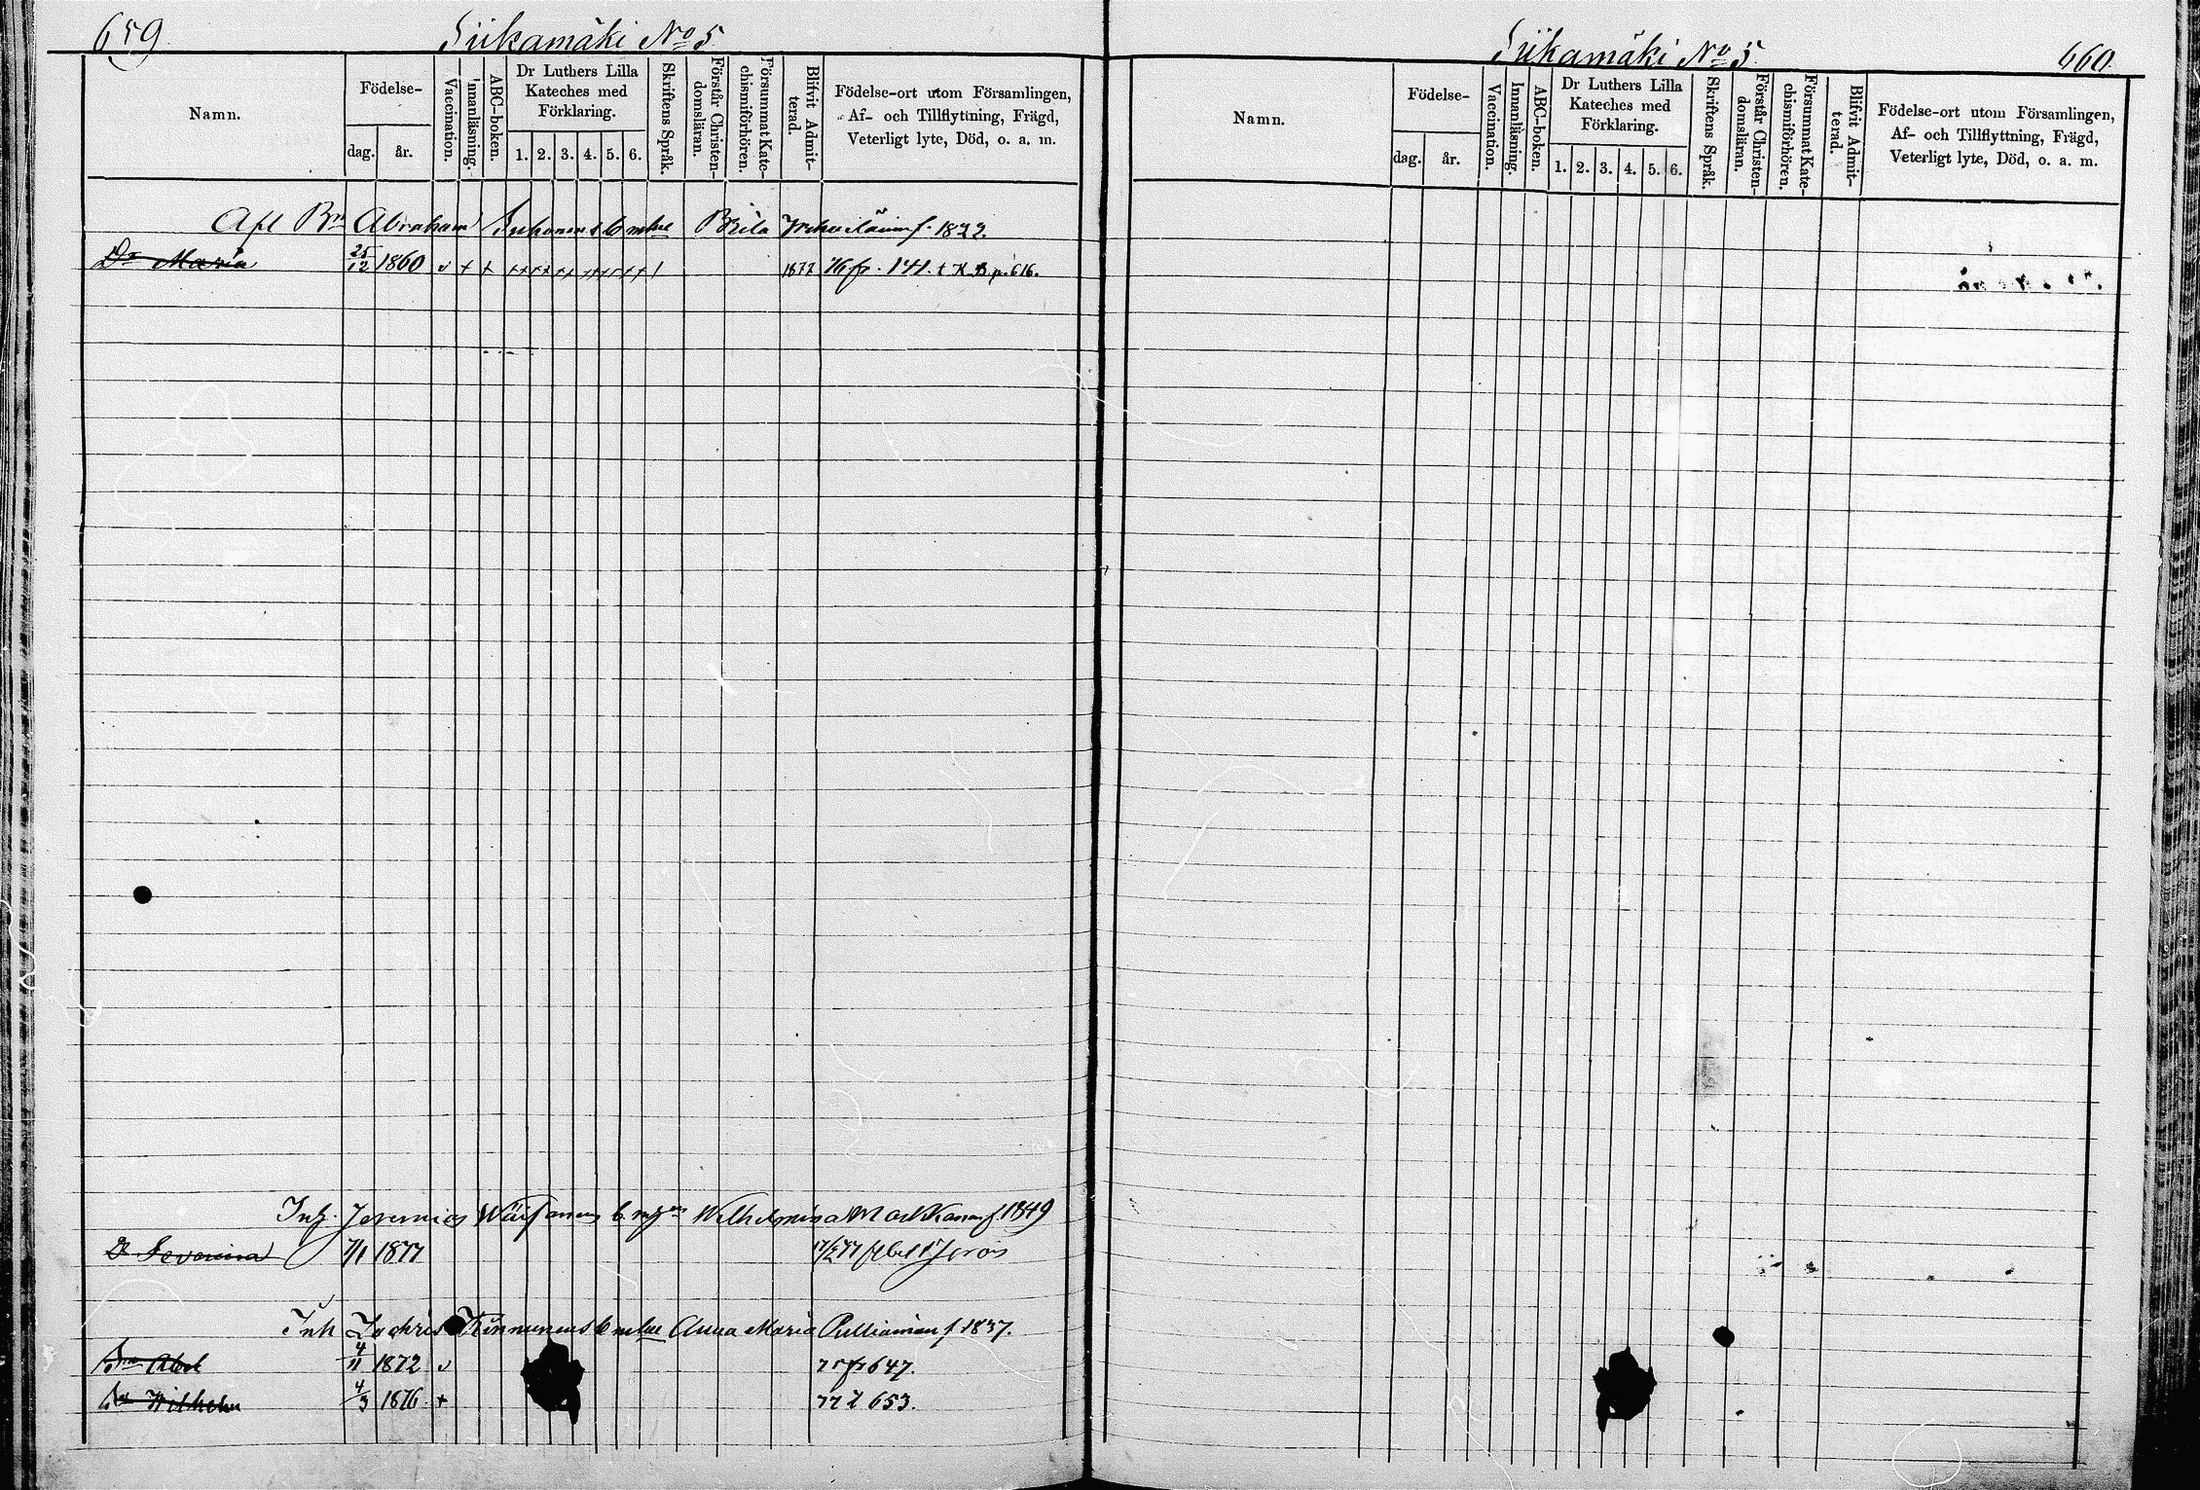 659
Siikamäki No 5
Namn.
Födelse-
dag.
år.
Vaccination.
Innanläsning.
ABC-boken.
Dr Luthers Lilla
Kateches med
Förklaring.
1. 2. 3. 4. 5. 6.
Skriftens Språk.
Förstår Christen-
domsläran.
Försummat Kate-
chismiförhören.
Blifvit Admit-
terad.
Födelse-ort utom Församlingen,
Af- och Tillflyttning, Frägd,
Veterligt lyte, Död, o. a. m.
Afl Bn Abraham b mhu Brita f. 1822.
Dr Maria 25/12 1860 v + + 1877 76 fr. 141. t K.B.p. 616.
Inh. Jeremias b. Wilhelmina Markkanen f. 1849
D. Severina 7/1 1877
Inh Zachris Kinnunens b mhu Anna Maria Pulliainen f 1837.
Sn Abel 4/11 1872 v 75 fr 647.
Sn Wilhelm 4/3 1876 + 77 t 653.
Siikamäki No 5
660
Namn.
Födelse-
dag.
år.
Vaccination.
Innanläsning.
ABC-boken.
Dr Luthers Lilla
Kateches med
Förklaring.
1. 2. 3. 4. 5. 6.
Skriftens Språk.
Förstår Christen-
domsläran.
Försummat Kate-
chismiförhören.
Blifvit Admit-
terad.
Födelse-ort utom Församlingen,
Af- och Tillflyttning, Frägd,
Veterligt lyte, Död, o. a. m.